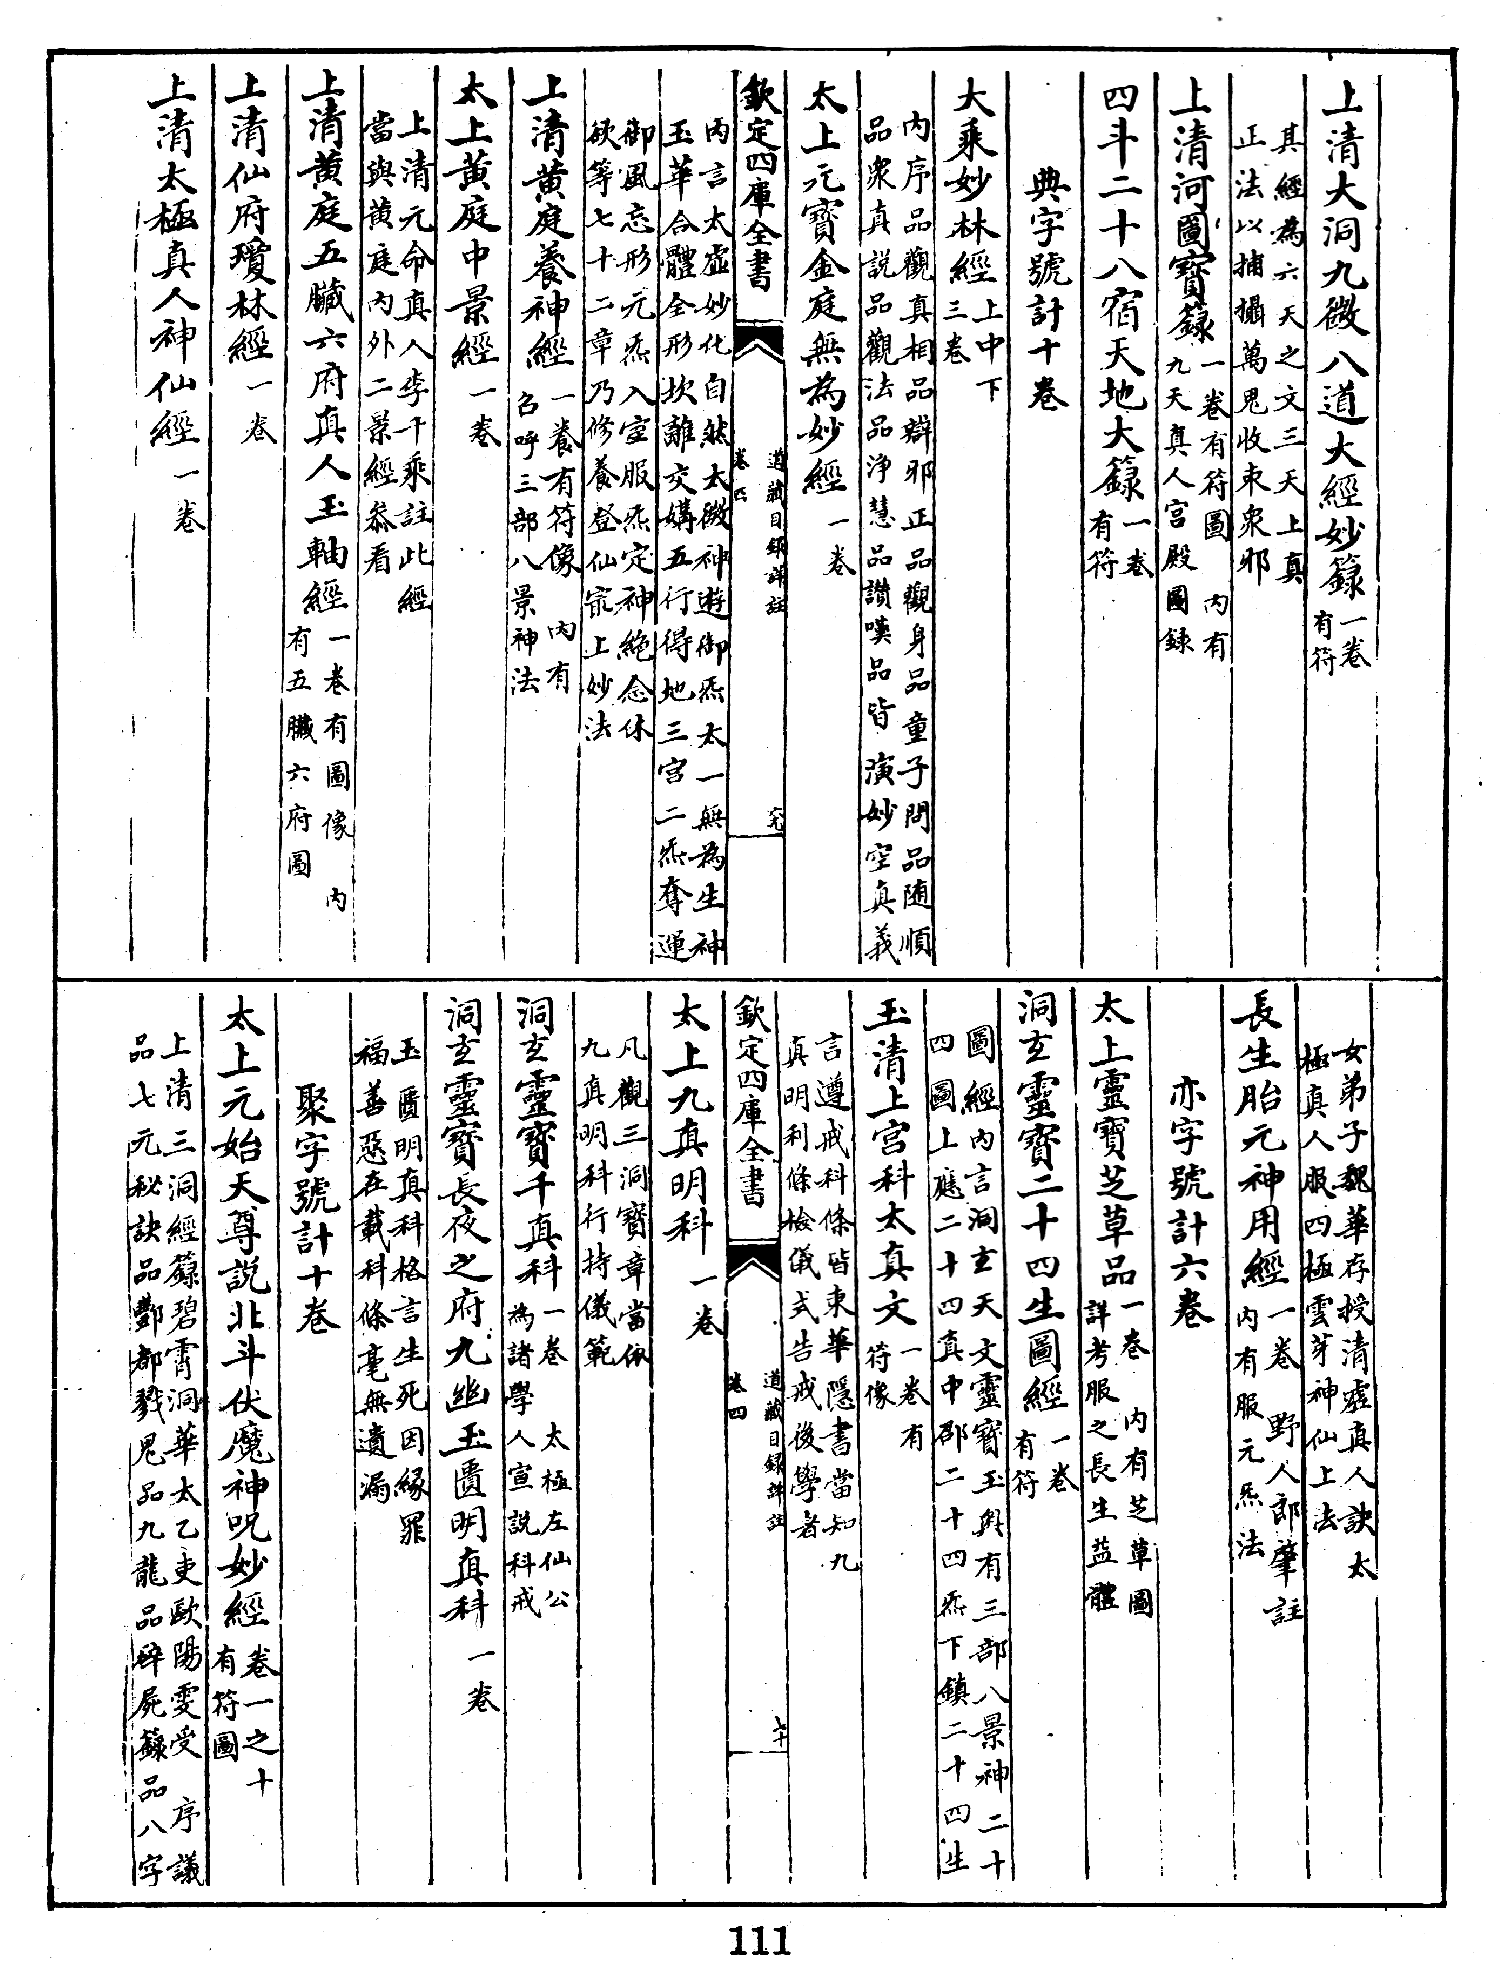 上清大洞九微八道大經妙籙一卷
有符
其經為六天之文三天上真
正法以捕攝萬鬼收束衆邪
上清河圖寶籙一卷有符圖 內有
九天真人宫殿圖錄
四斗二十八宿天地大籙一卷
有符
典字號計十卷
大乘妙林經上中下
三卷
內序品觀真相品辯邪正品觀身品童子問品随順
品衆真説品觀法品淨慧品讃嘆品皆 演妙空真義
太上元寶金庭無為妙經一卷
欽定四庫全書
道藏目録詳註
卷四
六九
內言太虛妙化自然太微神遊御炁太一無為生神
玉華合體全形坎離交媾五行得地三宫二炁奪運
御風忘形元炁入室服炁定神絶念休
欲等七十二章乃修養登仙㝡上妙法
上清黄庭養神經一卷有符像 內有
召呼三部八景神法
太上黄庭中景經一卷
上清元命真人李千乘註此經
當與黄庭內外二景經叅看
上清黄庭五臟六府真人玉軸經一卷有圖像 內
有五臟六府圖
上清仙府瓊林經一卷
上清太極真人神仙經一卷
女弟子魏華存授清虛真人訣太
極真人服四極雲芽神仙上法
長生胎元神用經一卷 野人郎肇註
內有服元炁法
亦字號計六卷
太上靈寶芝草品一卷 內有芝草圖
詳考服之長生益體
洞玄靈寶二十四生圖經一卷
有符
圖經內言洞玄天文靈寶玉與有三部八景神二十
四圖上應二十四真中部二十四炁下鎮二十四生
玉清上宫科太真文一卷有
符像
言遵戒科條皆東華隱書當知九
真明利條檢儀式告戒後學者
欽定四庫全書
道藏目録詳註
卷四
七十
太上九真明科一卷
凡觀三洞寶章當依
九真明科行持儀範
洞玄靈寶千真科一卷 太極左仙公
為諸學人宣説科戒
洞玄靈寶長夜之府九幽玉匱明真科一卷
玉匱明真科格言生死因緣罪
福善惡在載科條毫無遺漏
聚字號計十卷
太上元始天尊説北斗伏魔神呪妙經卷一之十
有符圖
上清三洞經籙碧霄洞華太乙吏歐陽雯受 序議
品七元秘訣品酆都戮鬼品九龍品碎屍籙品八字
111